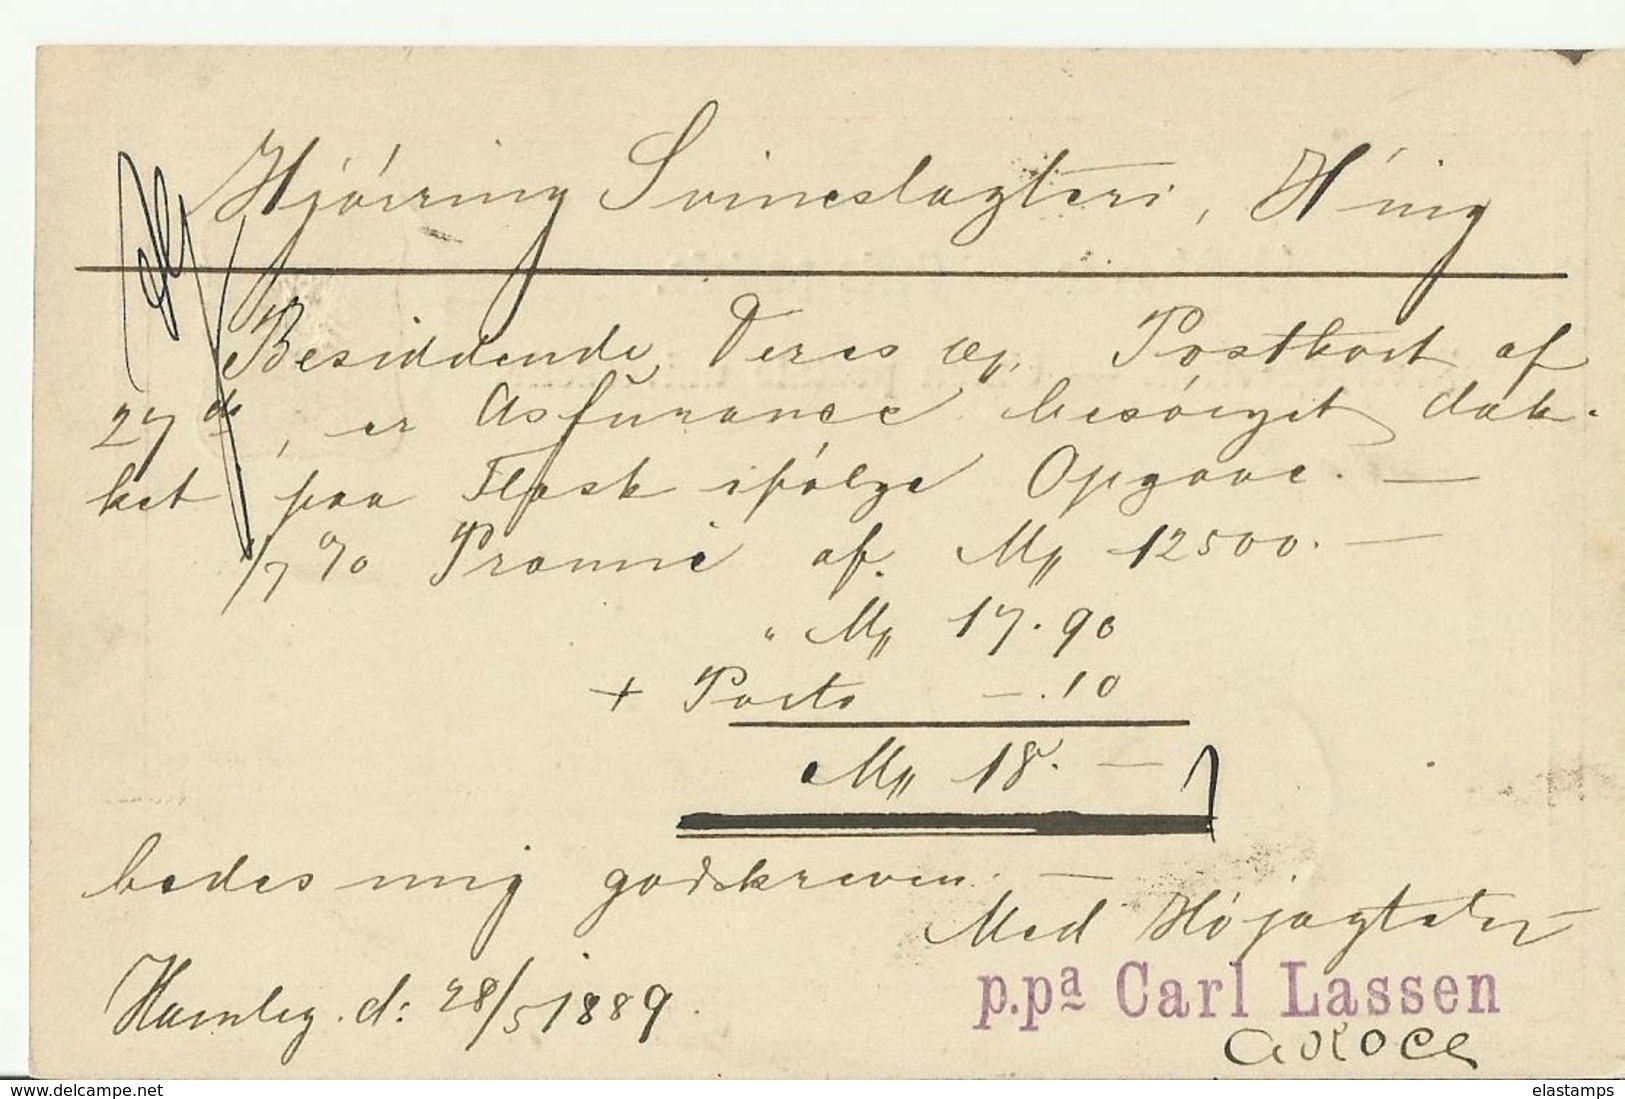 Hjörring Svineslagteri, H'ing
Besiddende Deres æg. Postkort af
27 ds, er Assurance besörget dæk-
ket paa Flæsk ifölge Opgave. —
1/7 % Præmie af. Mk 12500. —
" Mk 17.90
+ Porto —.10
Mk 18. —
bedes mig godskreven. —
Med Höjagtelse
Hambg. d: 28/5 1889.
p.pa Carl Lassen
elastamps